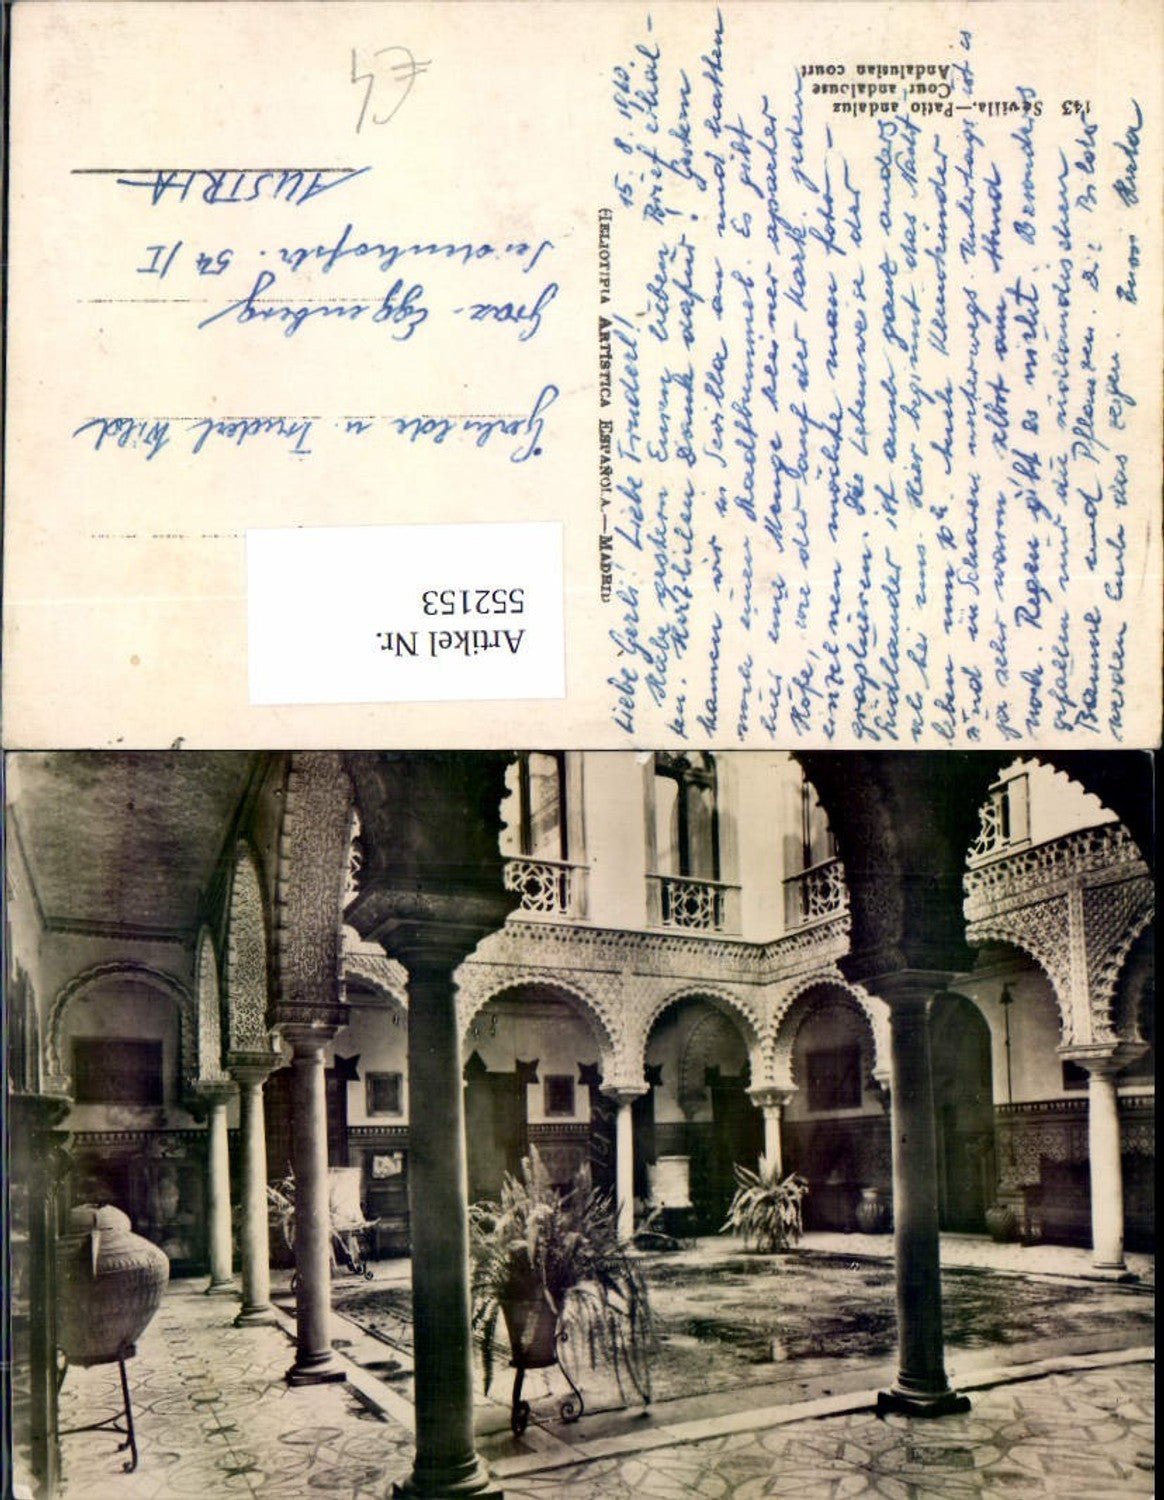 143 Sevilla.—Patio andaluz
Cour andalouse
Andalusian court
HELIOTIPIA ARTÍSTICA ESPAÑOLA.—MADRID
15. 8. 1960.
Liebe Gerli! Liebe Truderl!
Habe gestern Euren lieben Brief erhal-
ten. Herzlichen Dank dafür! Gestern
kamen wir in Sevilla an und hatten
noch einen Stadtbummel. Es gibt
hier eine Menge kleiner aparter
Höfe, wie der auf der Karte. Jeden
einzelnen möchte man foto-
graphieren. Die Lebensweise der
Südländer ist auch ganz anders
als bei uns. Hier beginnt das Nacht-
leben um 10h. Auch Kleinkinder
sind in Scharen unterwegs. Untertags ist es
ja sehr warm selbst am Abend
noch. Regen gibt es nicht. Besonders
gefallen mir die südländischen
Bäume und Pflanzen. Die Bilder
werden Euch das zeigen. Eure Herta
Gerhilde u. Truderl Wild
Graz-Eggenberg
Seidenhofstr. 54/I
AUSTRIA
€4
Artikel Nr.
552153